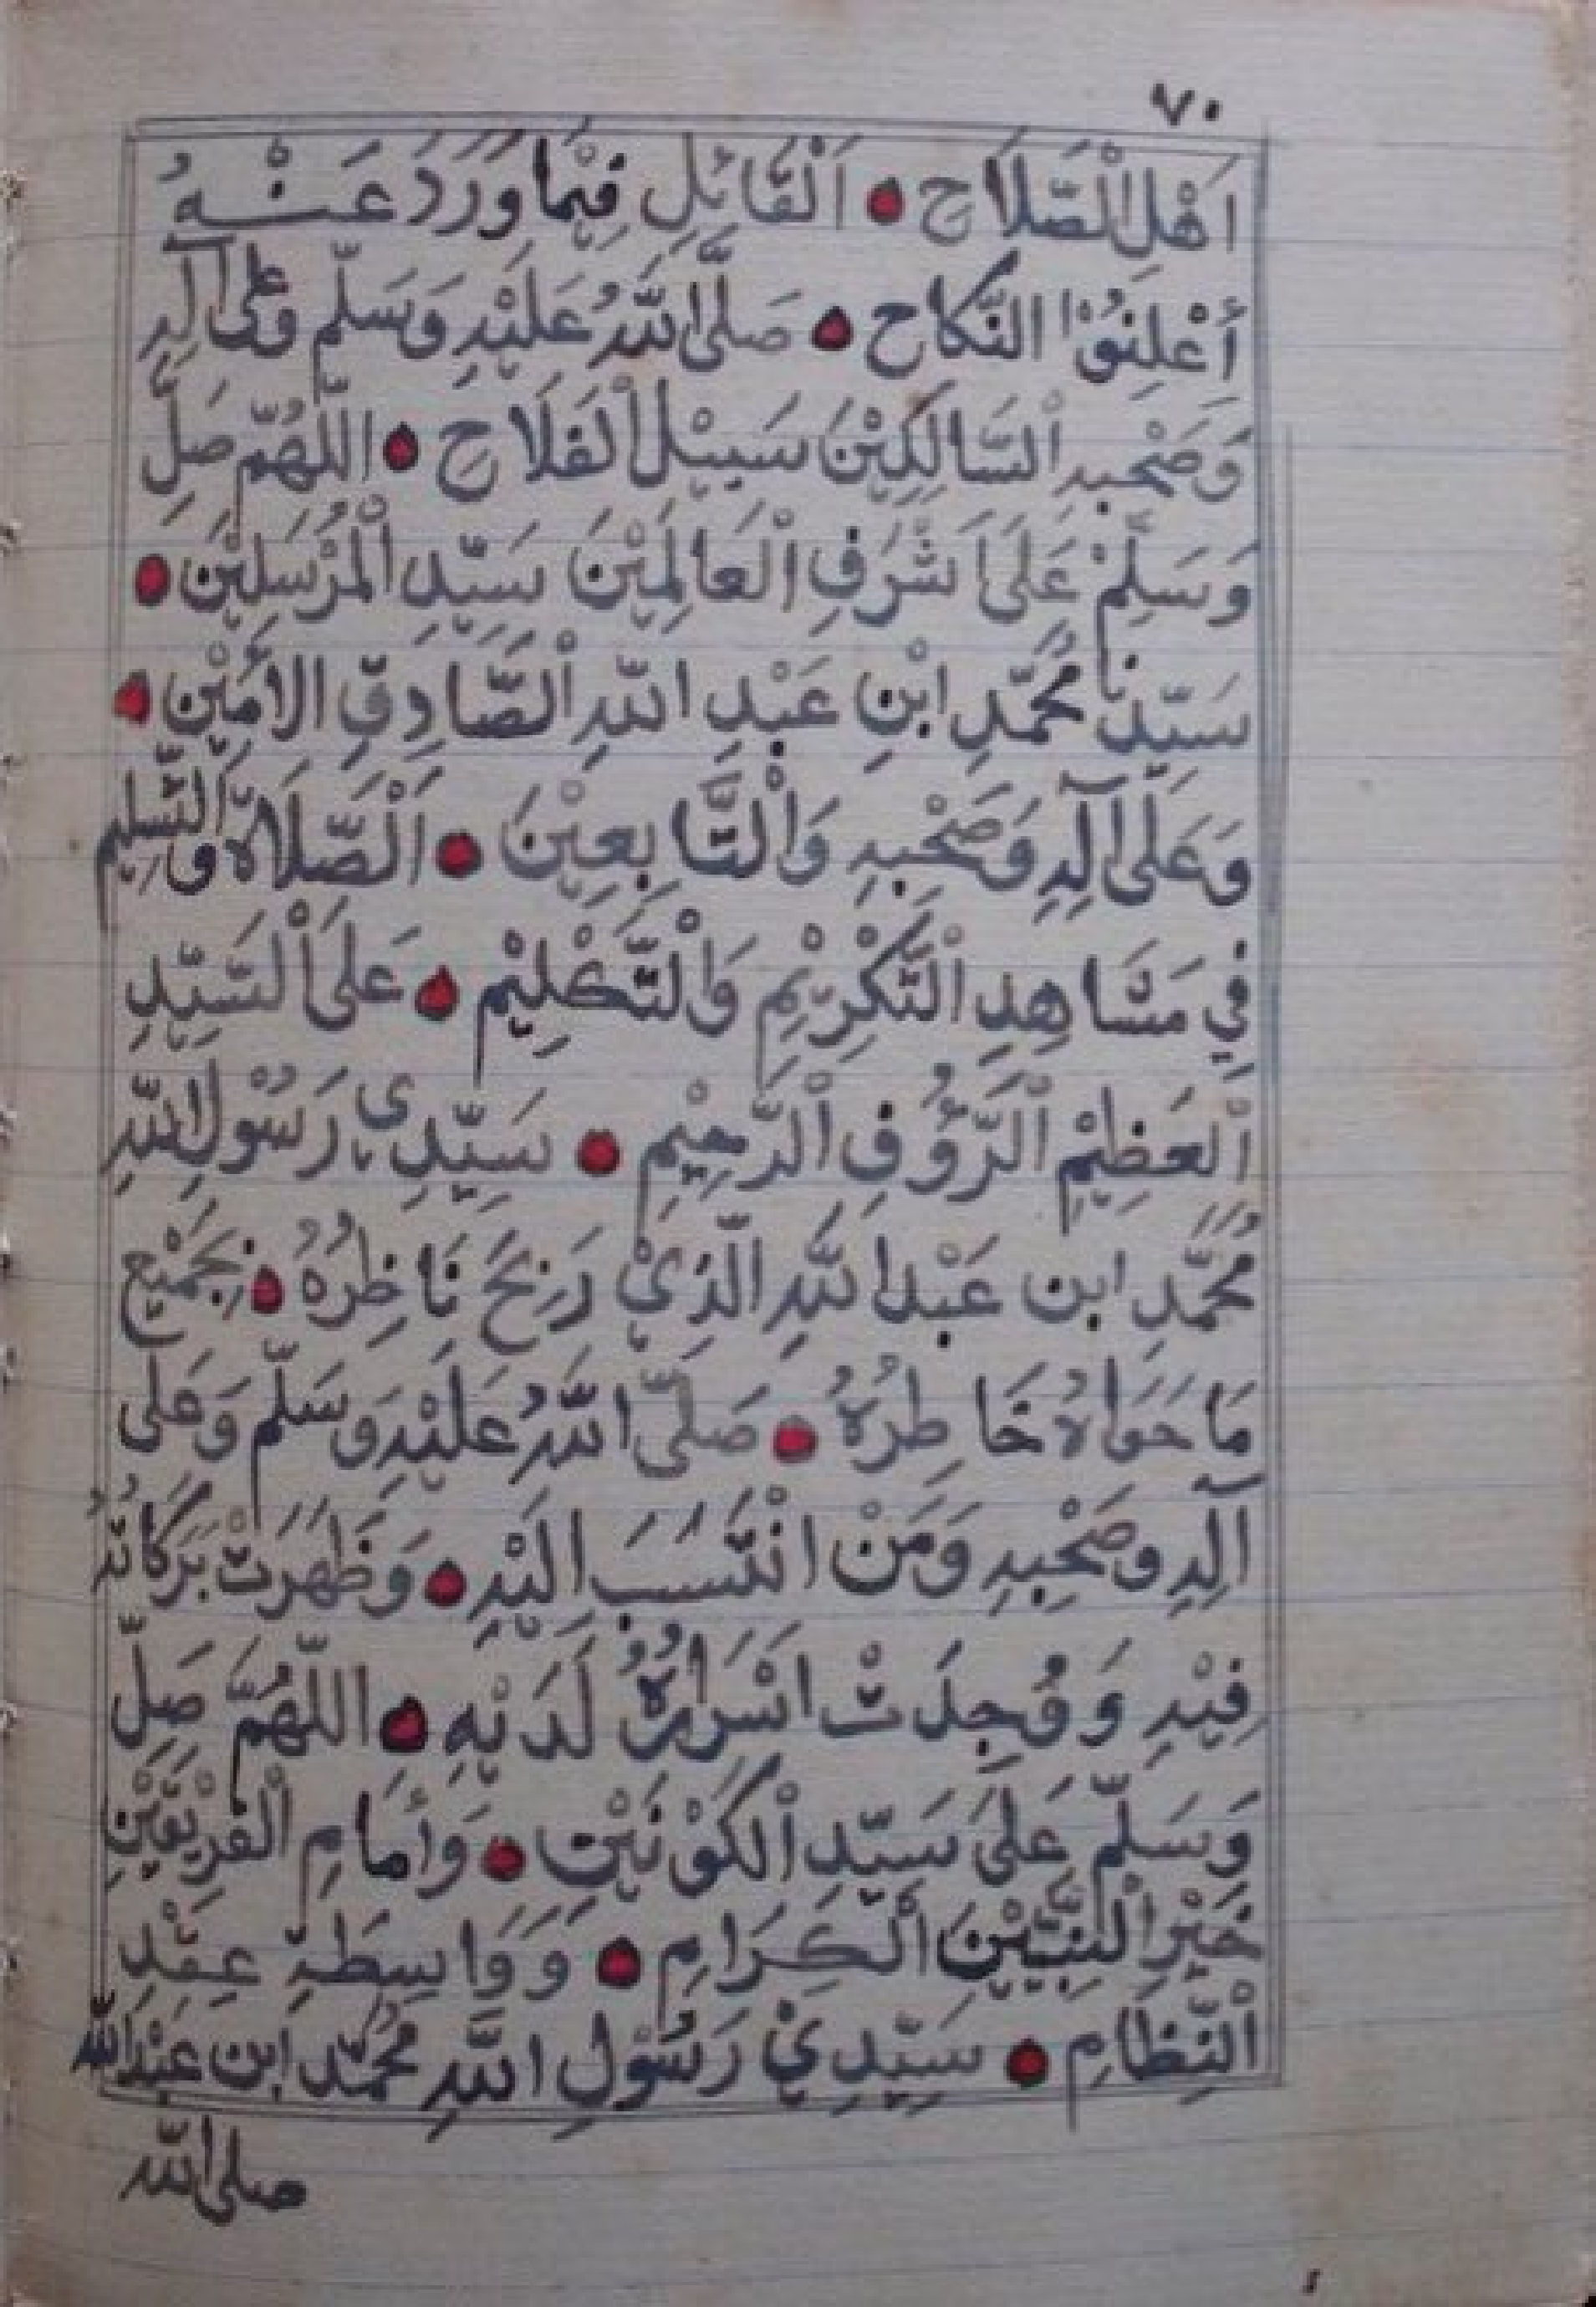 ٧٠
اَهْلِ الْصَّلَاحِ • اَلْقَائِلِ فِيْمَا وَرَدَ عَنْهُ
أَعْلِنُوْا النِّكَاح • صَلَّى اللّٰهُ عَلَيْهِ وَسَلَّم وَعَلَى آلِهِ
وَصَحْبِهِ الْسَّالِكِيْنَ سَبِيْلَ الْفَلَاحِ • اللّٰهُمَّ صَلِّ
وَسَلِّمْ عَلَى اَشْرَفِ الْعَالَمِيْنَ سَيِّدِ الْمُرْسَلِيْن •
سَيِّدِنَا مُحَمَّدِ ابْنِ عَبْدِ اللّٰهِ الْصَّادِقِ الاَمِيْن •
وَعَلَى آلِهِ وَصَحْبِهِ وَالْتَّابِعِيْنَ • اَلْصَّلَاةُ وَالتَّسْلِيم
فِي مَشَاهِدِ الْتَّكْرِيْمِ وَالْتَّكْلِيْم • عَلَى الْسَّيِّدِ
اَلعَظِيْمِ الْرَّؤُوفِ الْرَّحِيْمِ • سَيِّدِي رَسُوْلِ اللّٰهِ
مُحَمَّدِ ابن عَبْدِ اللّٰهِ الَّذِيْ رَبِحَ نَاظِرُهُ • بِجَمِيْعِ
مَا حَوَاهُ خَاطِرُهُ • صَلَّى اللّٰهُ عَلَيْهِ وَسَلَّم وَعَلَى
آلِهِ وَصَحْبِهِ وَمَنْ انْتَسَبَ الَيْهِ • وَظَهَرَتْ بَرَكَاتُهُ
فِيْهِ وَوُجِدَتْ اَسْرَارُهُ لَدَيْهِ • اللّٰهُمَّ صَلِّ
وَسَلِّم عَلَى سَيِّدِ الْكَوْنَيْنِ • وَأمَامِ الْفَرِيْقَيْنِ
خَيْرِ الْنَّبِيِّيْنَ الْكِرَامِ • وَوَاسِطَةِ عِقْدِ
الْنِّظَامِ • سَيِّدِيْ رَسُوْلِ اللّٰهِ مُحَمَّد ابن عَبْدِ اللّٰه
صلى اللّٰه